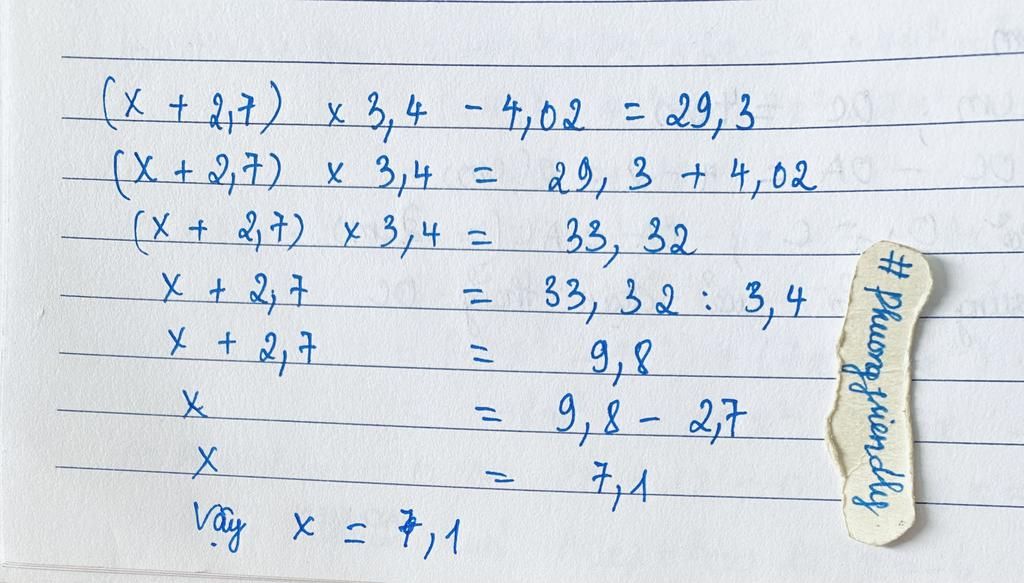 (x + 2,7) x 3,4 - 4,02 = 29,3
(x + 2,7) x 3,4 = 29,3 + 4,02
(x + 2,7) x 3,4 = 33,32
x + 2,7 = 33,32 : 3,4
x + 2,7 = 9,8
x = 9,8 - 2,7
x = 7,1
Vậy x = 7,1
#Phuongfriendly